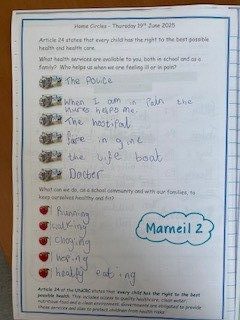 Home Circles - Thursday 19th June 2025
Article 24 states that every child has the right to the best possible
health and health care.
What health services are available to you, both in school and as a
family? Who helps us when we are feeling ill or in pain?
The Police
When I am in pain the
nurse helps me.
The hostipal
the life boat
Docter
What can we do, as a school community and with our families, to
keep ourselves healthy and fit?
Running
walking
Marneil 2
healthy eating
Article 24 of the UNCRC states that every child has the right to the best
possible health. This includes access to quality healthcare, clean water,
nutritious food and a clean environment. Governments are obligated to provide
these services and also to protect children from health risks